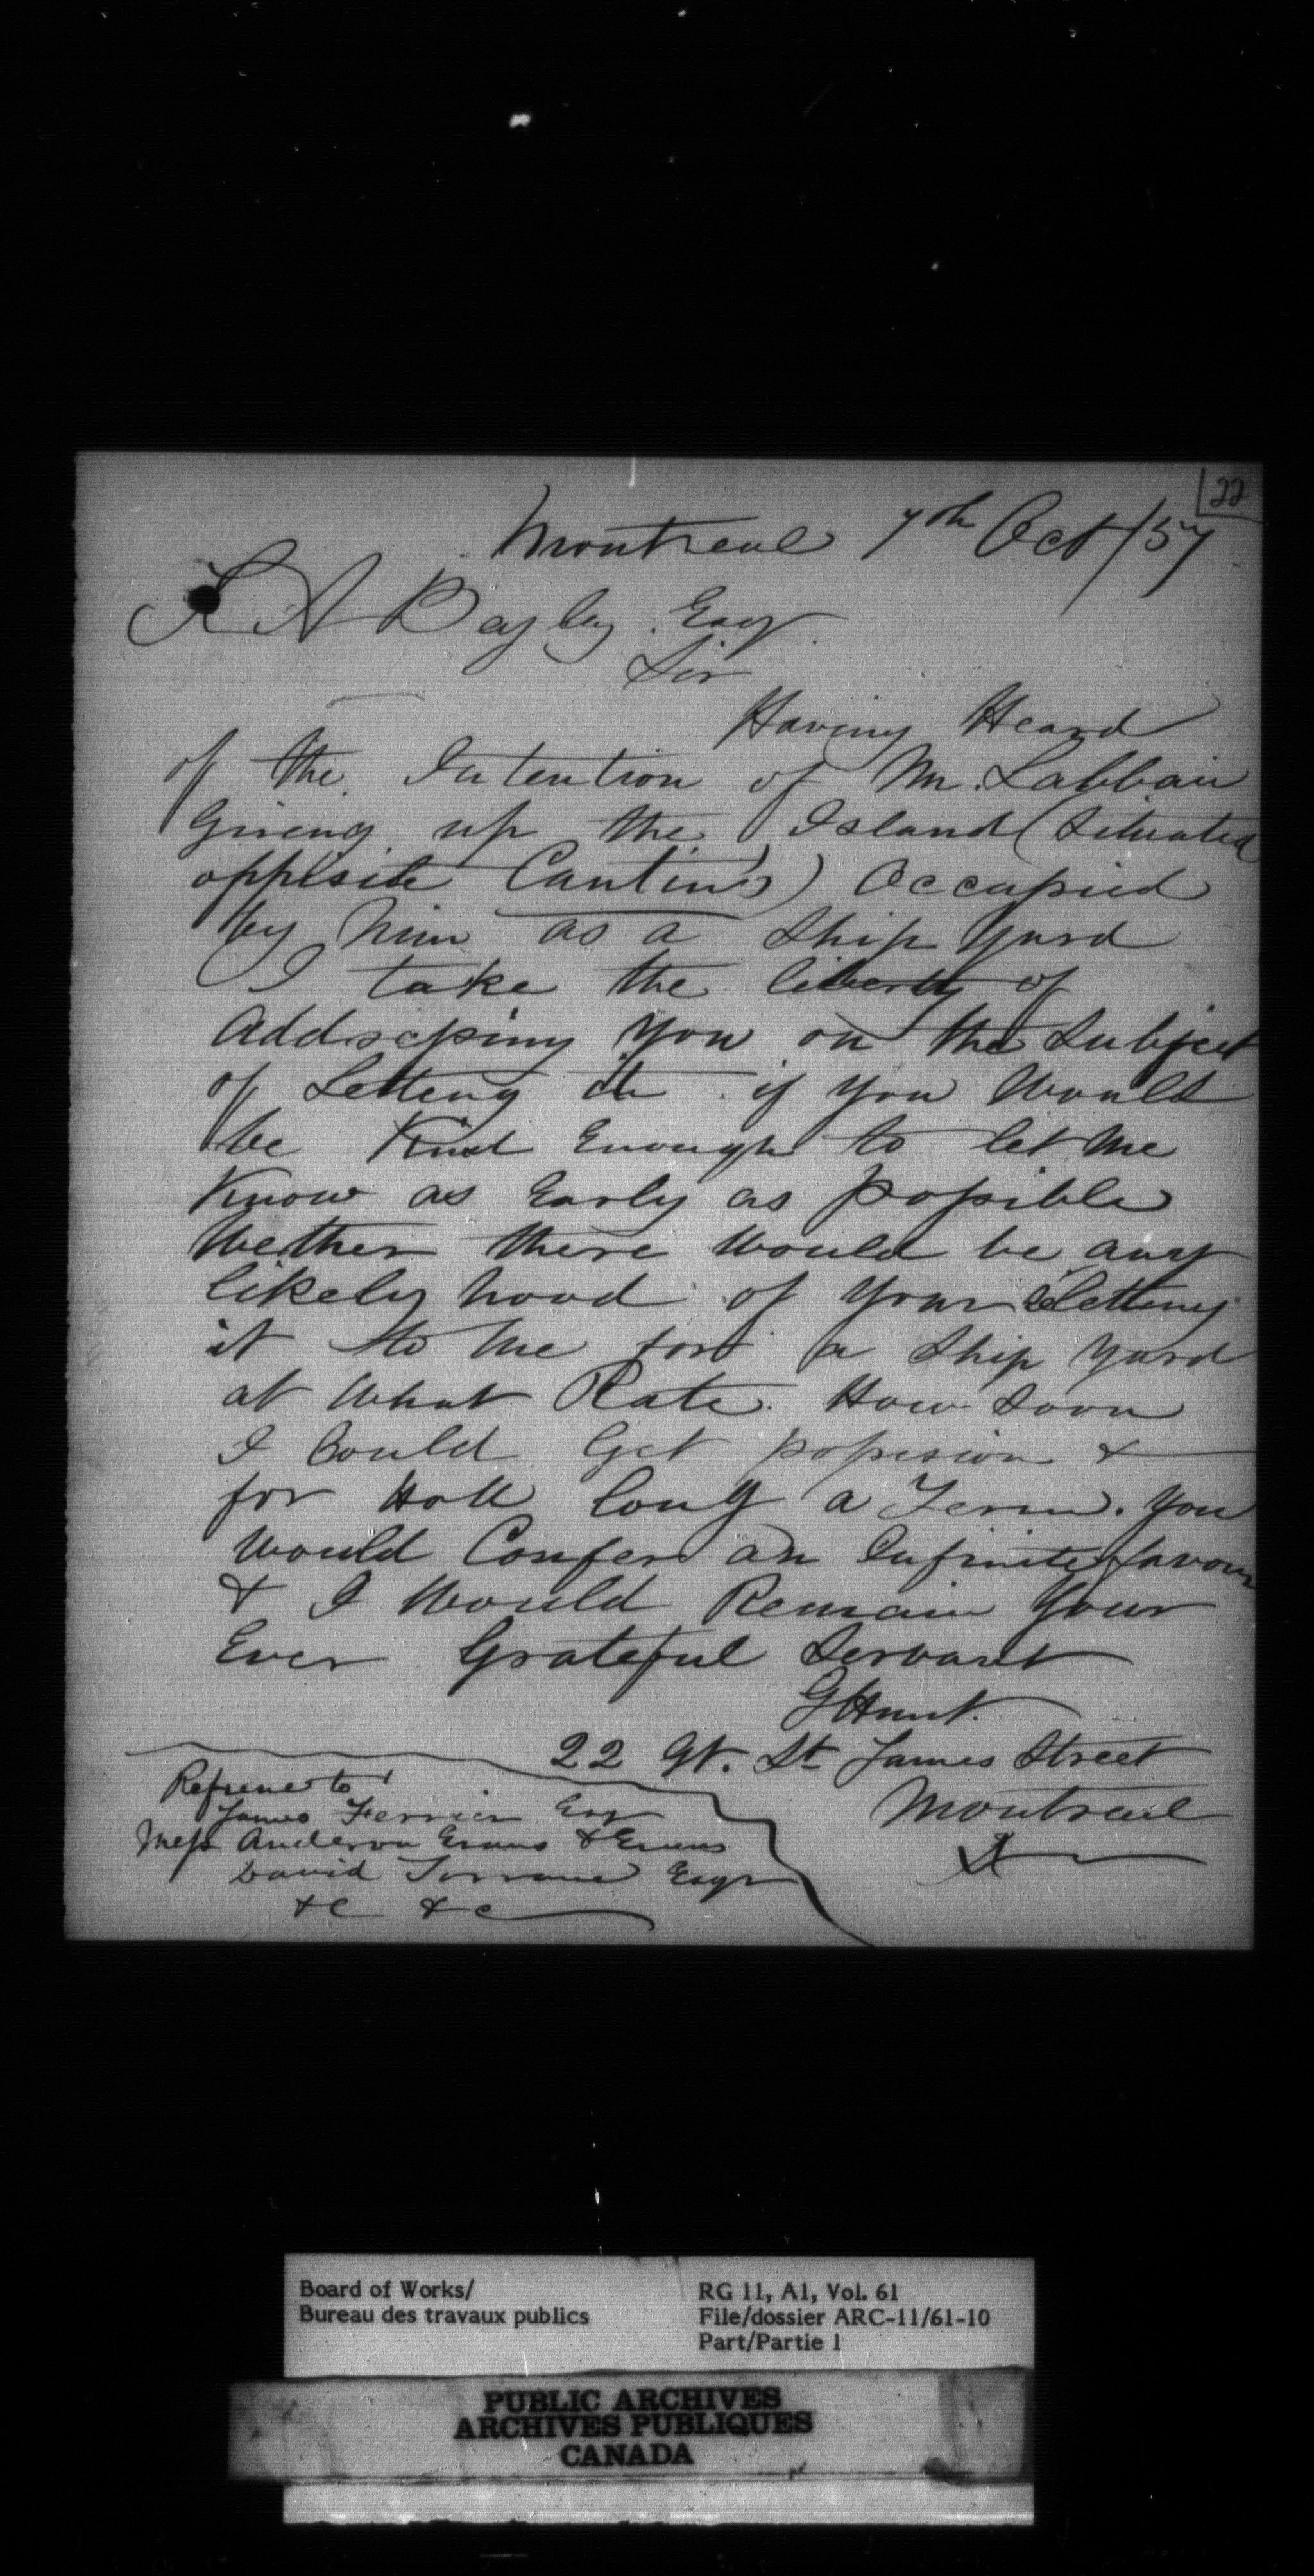 22
Montreal 7th Oct/57
T A Begley Esqr.
Sir
Having Heard
of the Intention of Mr. Labbair
Giveing up the Island (Situated
oppisite Cantin's) Occupied
by him as a Ship yard
I take the liberty of
Addressing you on the Subject
of Letteng it if you Would
be Kind Enough to let Me
Know as Early as possible
Wether there Would be any
likely hood of your letting
it to Me for a Ship Yard
at What Rate. How Soon
I Could Get possesion &
for How long a Term. you
Would Confer an Infinite favour
& I Would Remain Your
Ever Grateful Servant
G Hunt.
22 Gt. St James Street
Montreal
Refrence to
James Ferrier Esqr
Mess Anderson Evans & Evans
David Torrance Esqr
&c &c
Board of Works/
Bureau des travaux publics
RG 11, A1, Vol. 61
File/dossier ARC-11/61-10
Part/Partie 1
PUBLIC ARCHIVES
ARCHIVES PUBLIQUES
CANADA